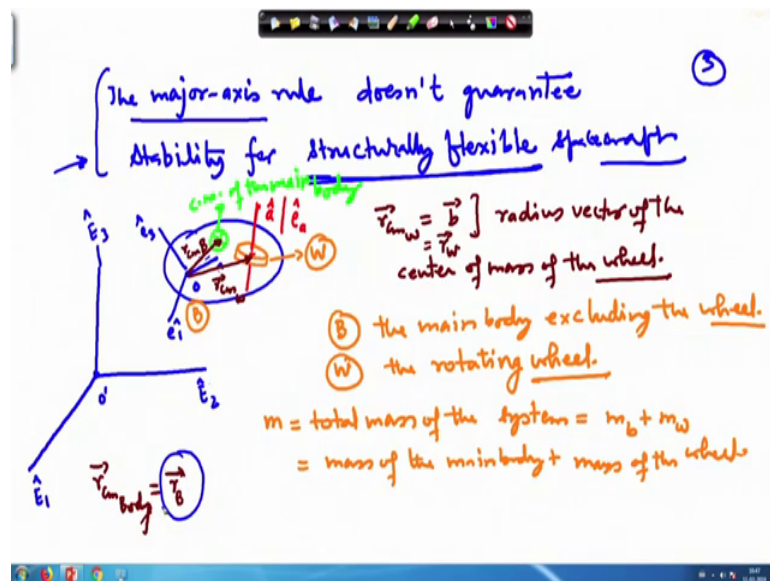 3
The major-axis rule doesn't guarantee
stability for structurally flexible spacecraft
c.m. of the main body
â / ê_a
ê_3
Ê_3
r_cm_B
r⃗_cm_w
W
O
B
ê_1
O'
Ê_2
Ê_1
r⃗_cm_w = b⃗ ] radius vector of the
= r⃗_w
center of mass of the wheel.
B the main body excluding the wheel.
W the rotating wheel.
m = total mass of the system = m_b + m_w
= mass of the main body + mass of the wheel
r⃗_cm_Body = r⃗_B